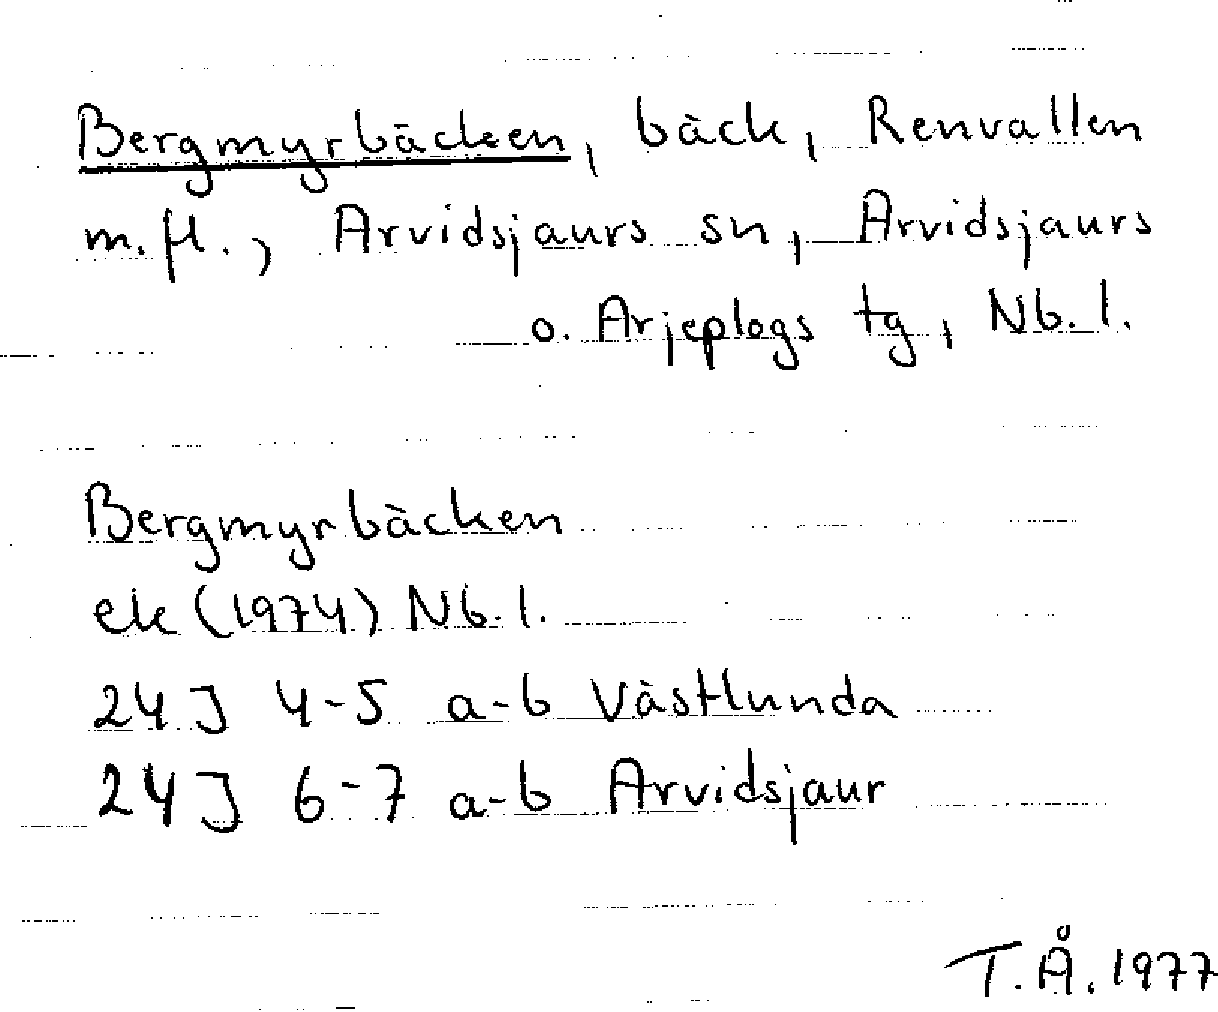 Bergmyrbäcken, bäck, Renvallen
m. fl., Arvidsjaurs sn, Arvidsjaurs
o. Arjeplogs tg, Nb. l.
Bergmyrbäcken
ek (1974) Nb. l.
24 J 4-5 a-b Västlunda
24 J 6-7 a-b Arvidsjaur
T. Å. 1977